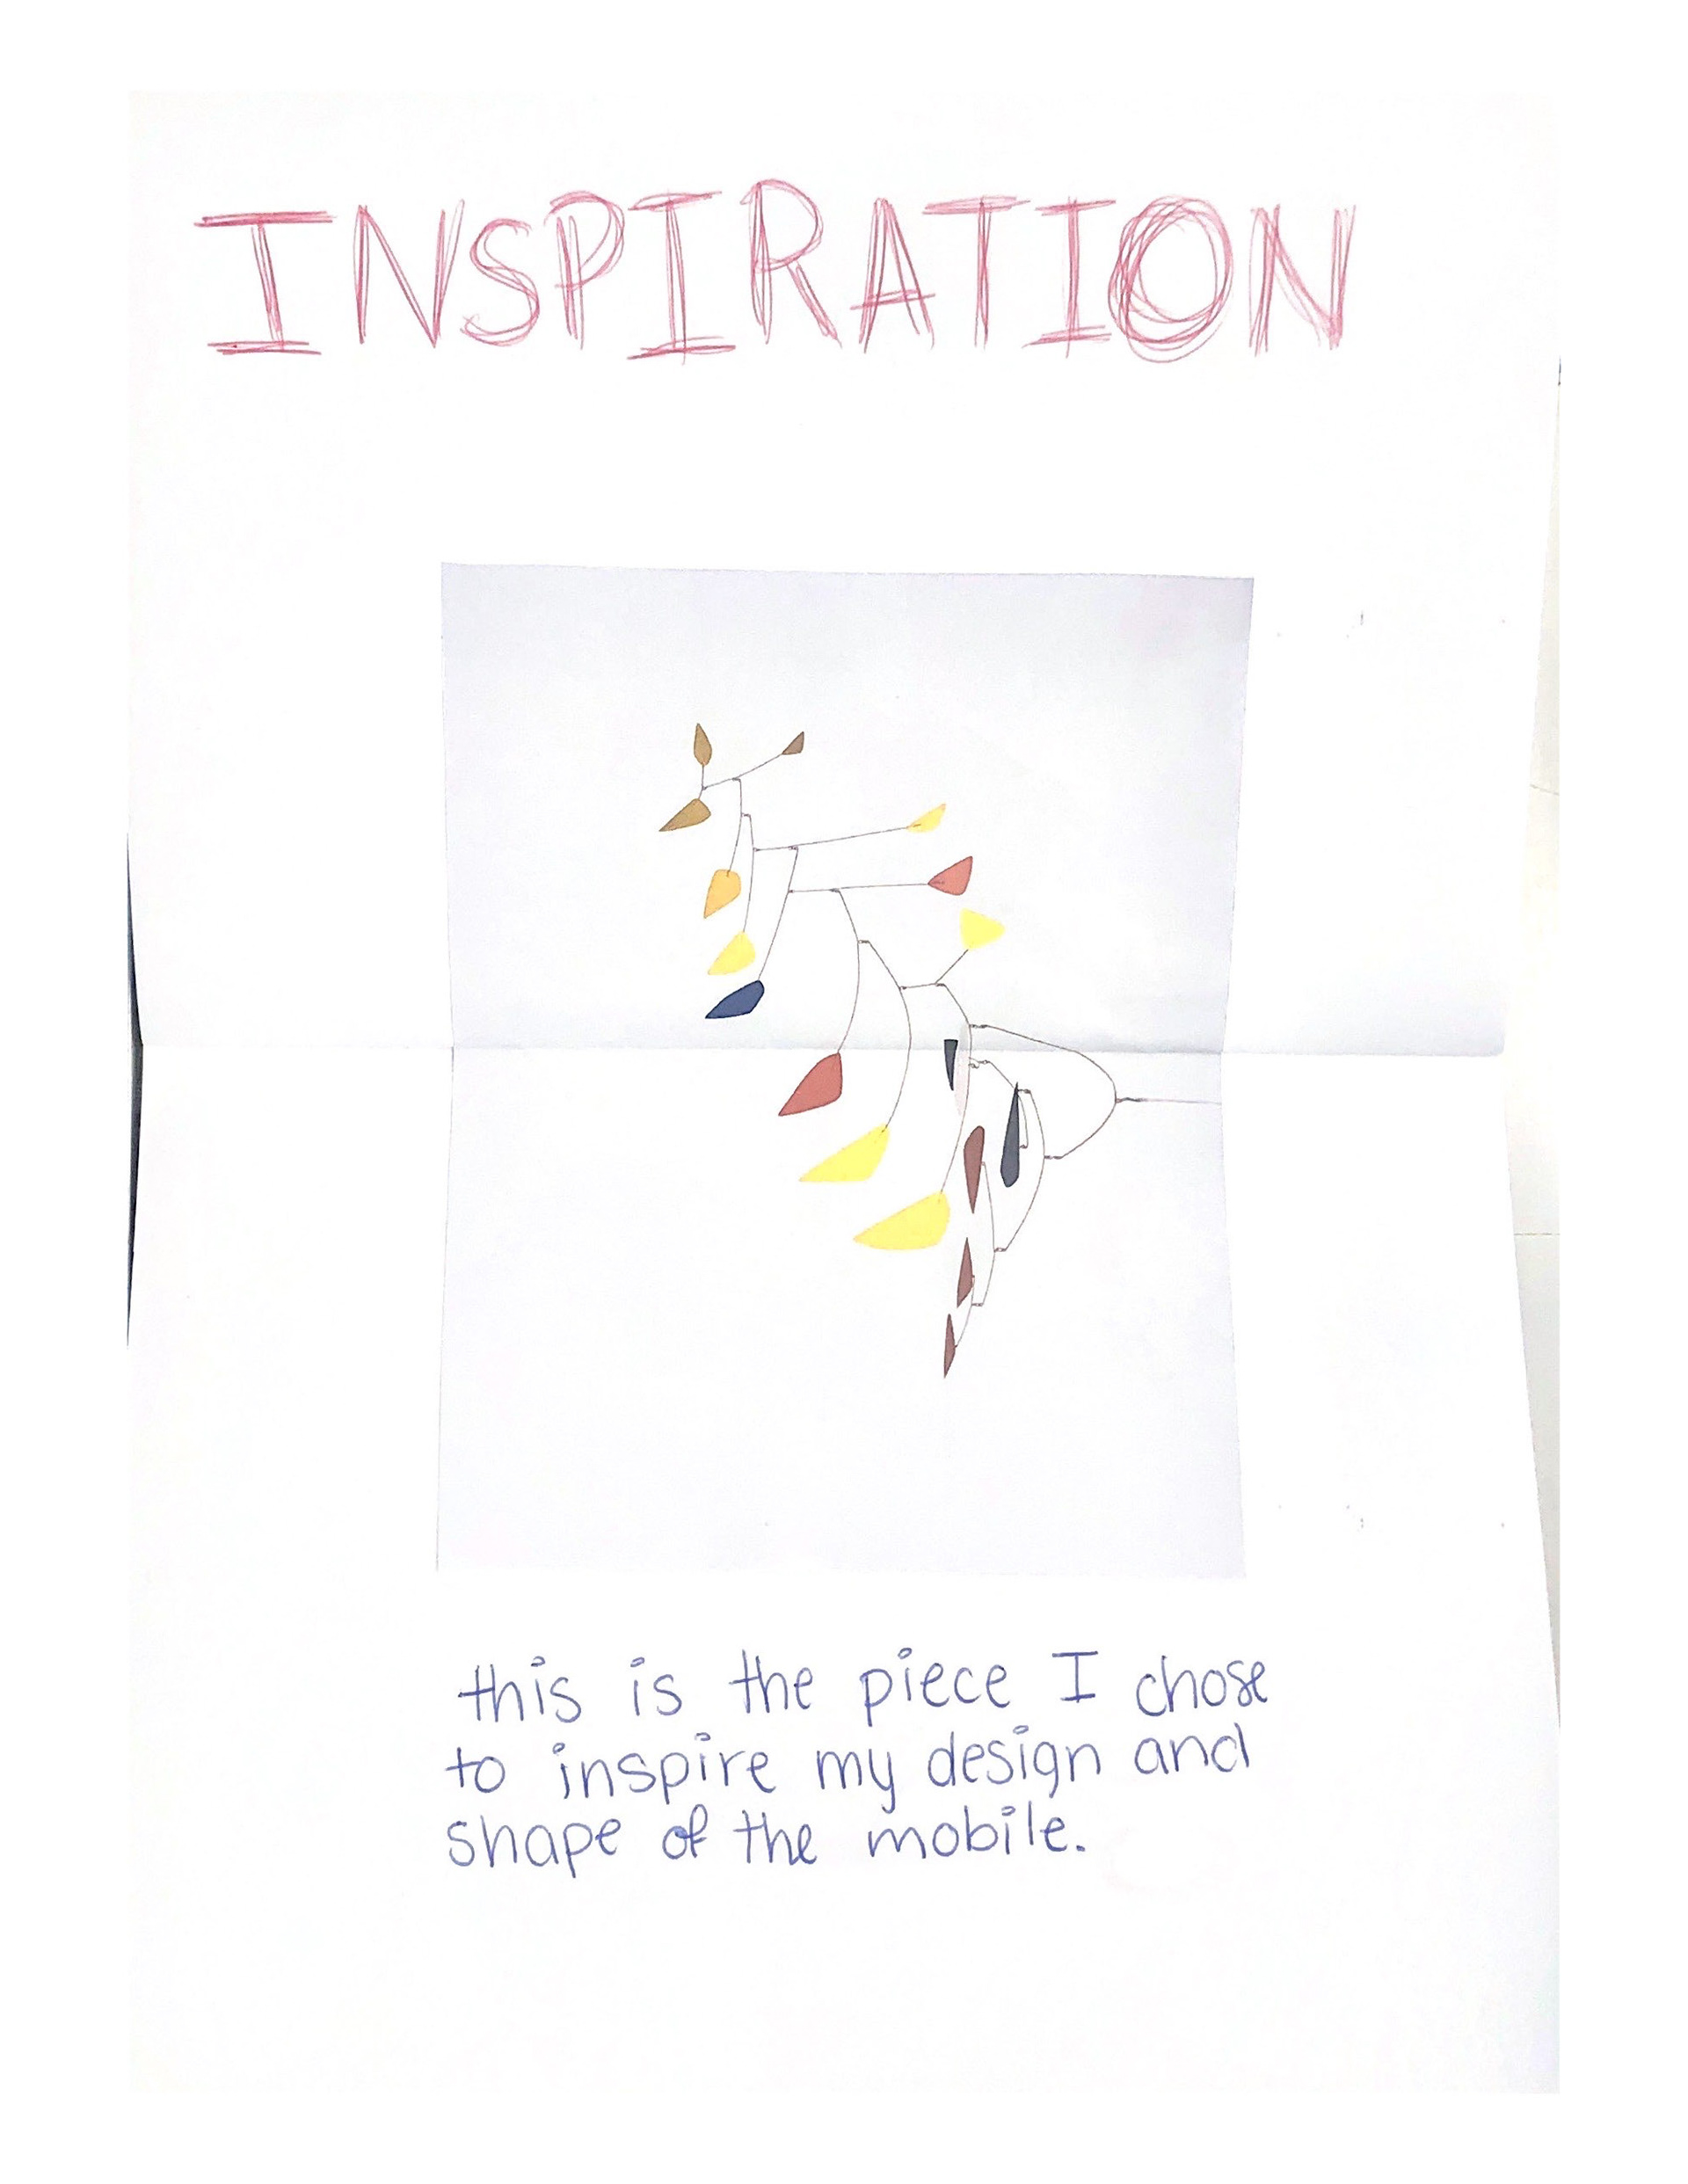 INSPIRATION
this is the piece I chose
to inspire my design and
shape of the mobile.